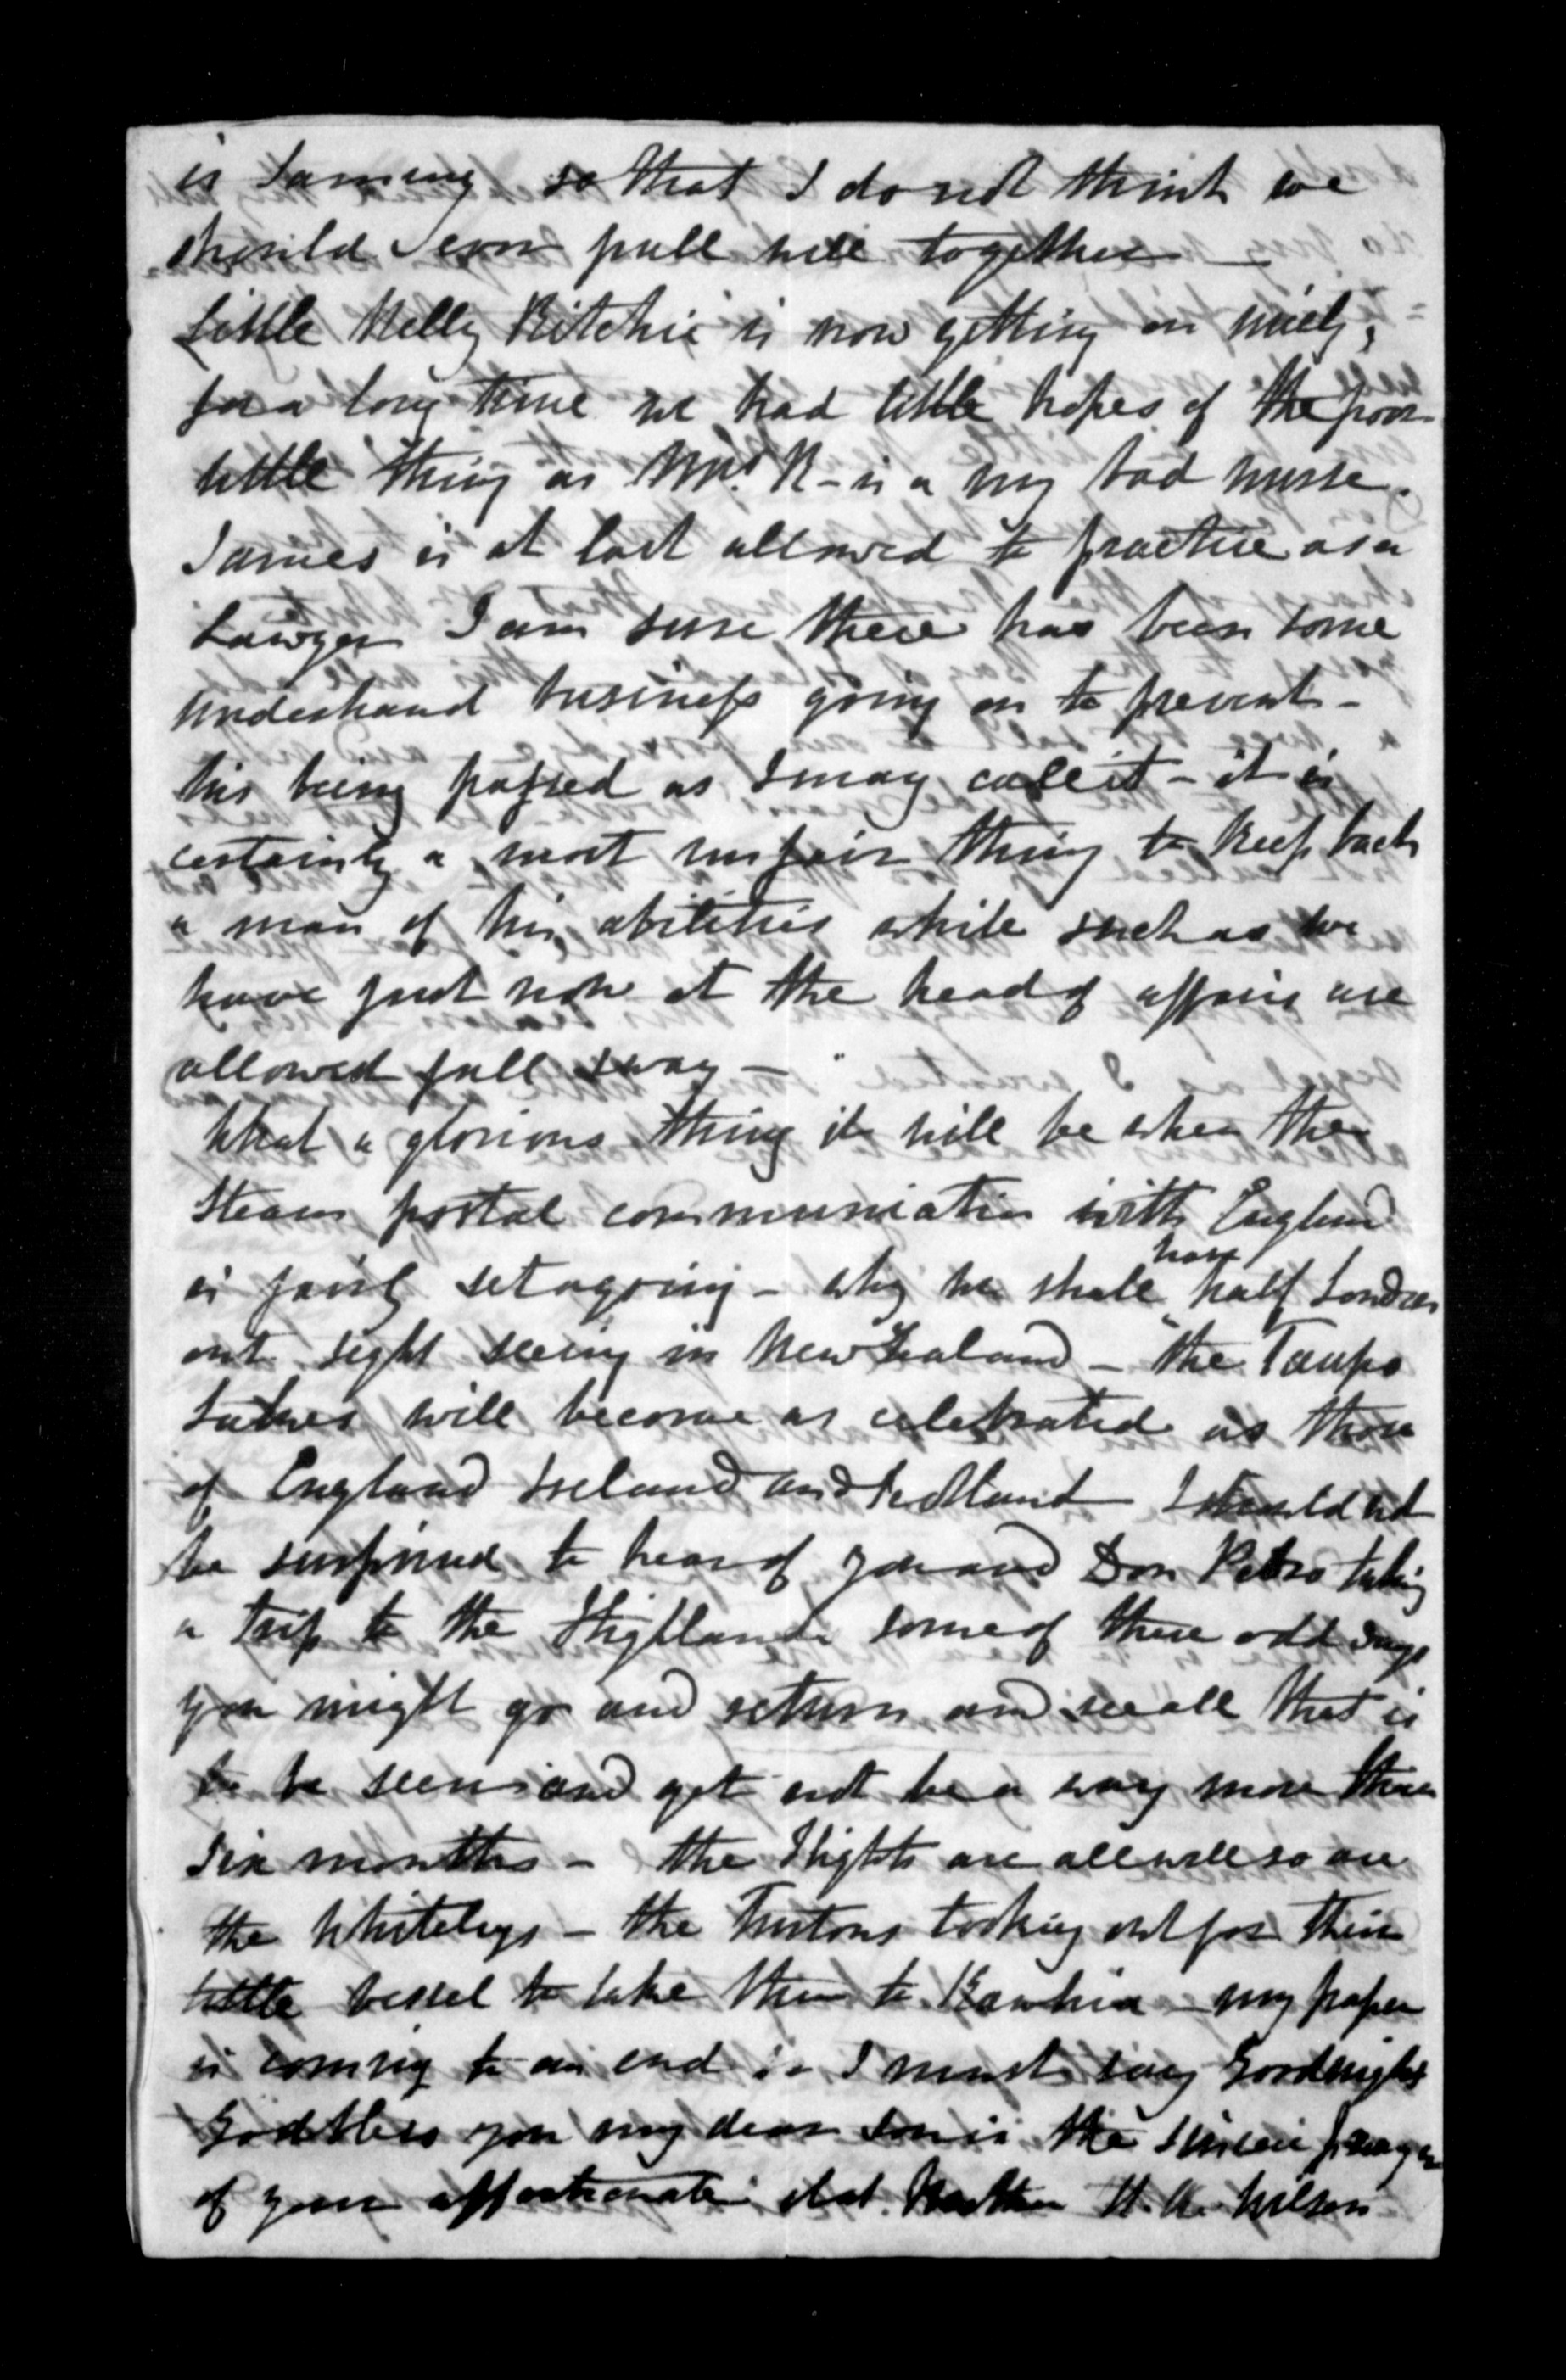 is Samény so that I do not think we
should even pull well together —
Little Nelly Ritchie is now getting on nicely,
for a long time we had little hopes of the poor
little thing as Mrs. R – is a very bad nurse.
James is at last allowed to practice as a
Lawyer I am sure there has been some
underhand business going on to prevent –
his being passed as I may call it – it is
certainly a most unfair thing to keep back
a man of his abilities while such as we
have just now at the head of affairs are
allowed full sway –
What a glorious thing it will be when the
Steam postal communication with England
is fairly set agoing – why we shall have half London
out sight seeing in New Zealand – the Taupo
Lakes will become as celebrated as those
of England Ireland and Scotland I should not
be surprised to hear of you and Don Pedro taking
a trip to the Highlands some of these odd days
you might go and return and see all that is
to be seen and yet not be a way more than
six months – the Flights are all well so are
the Whiteleys – the Turtons looking out for their
little vessel to take them to Kawhia – my paper
is coming to an end so I must say Goodnight
God bless you my dear Son is the sincere prayer
of your affectionate old Mother H. A. Wilson